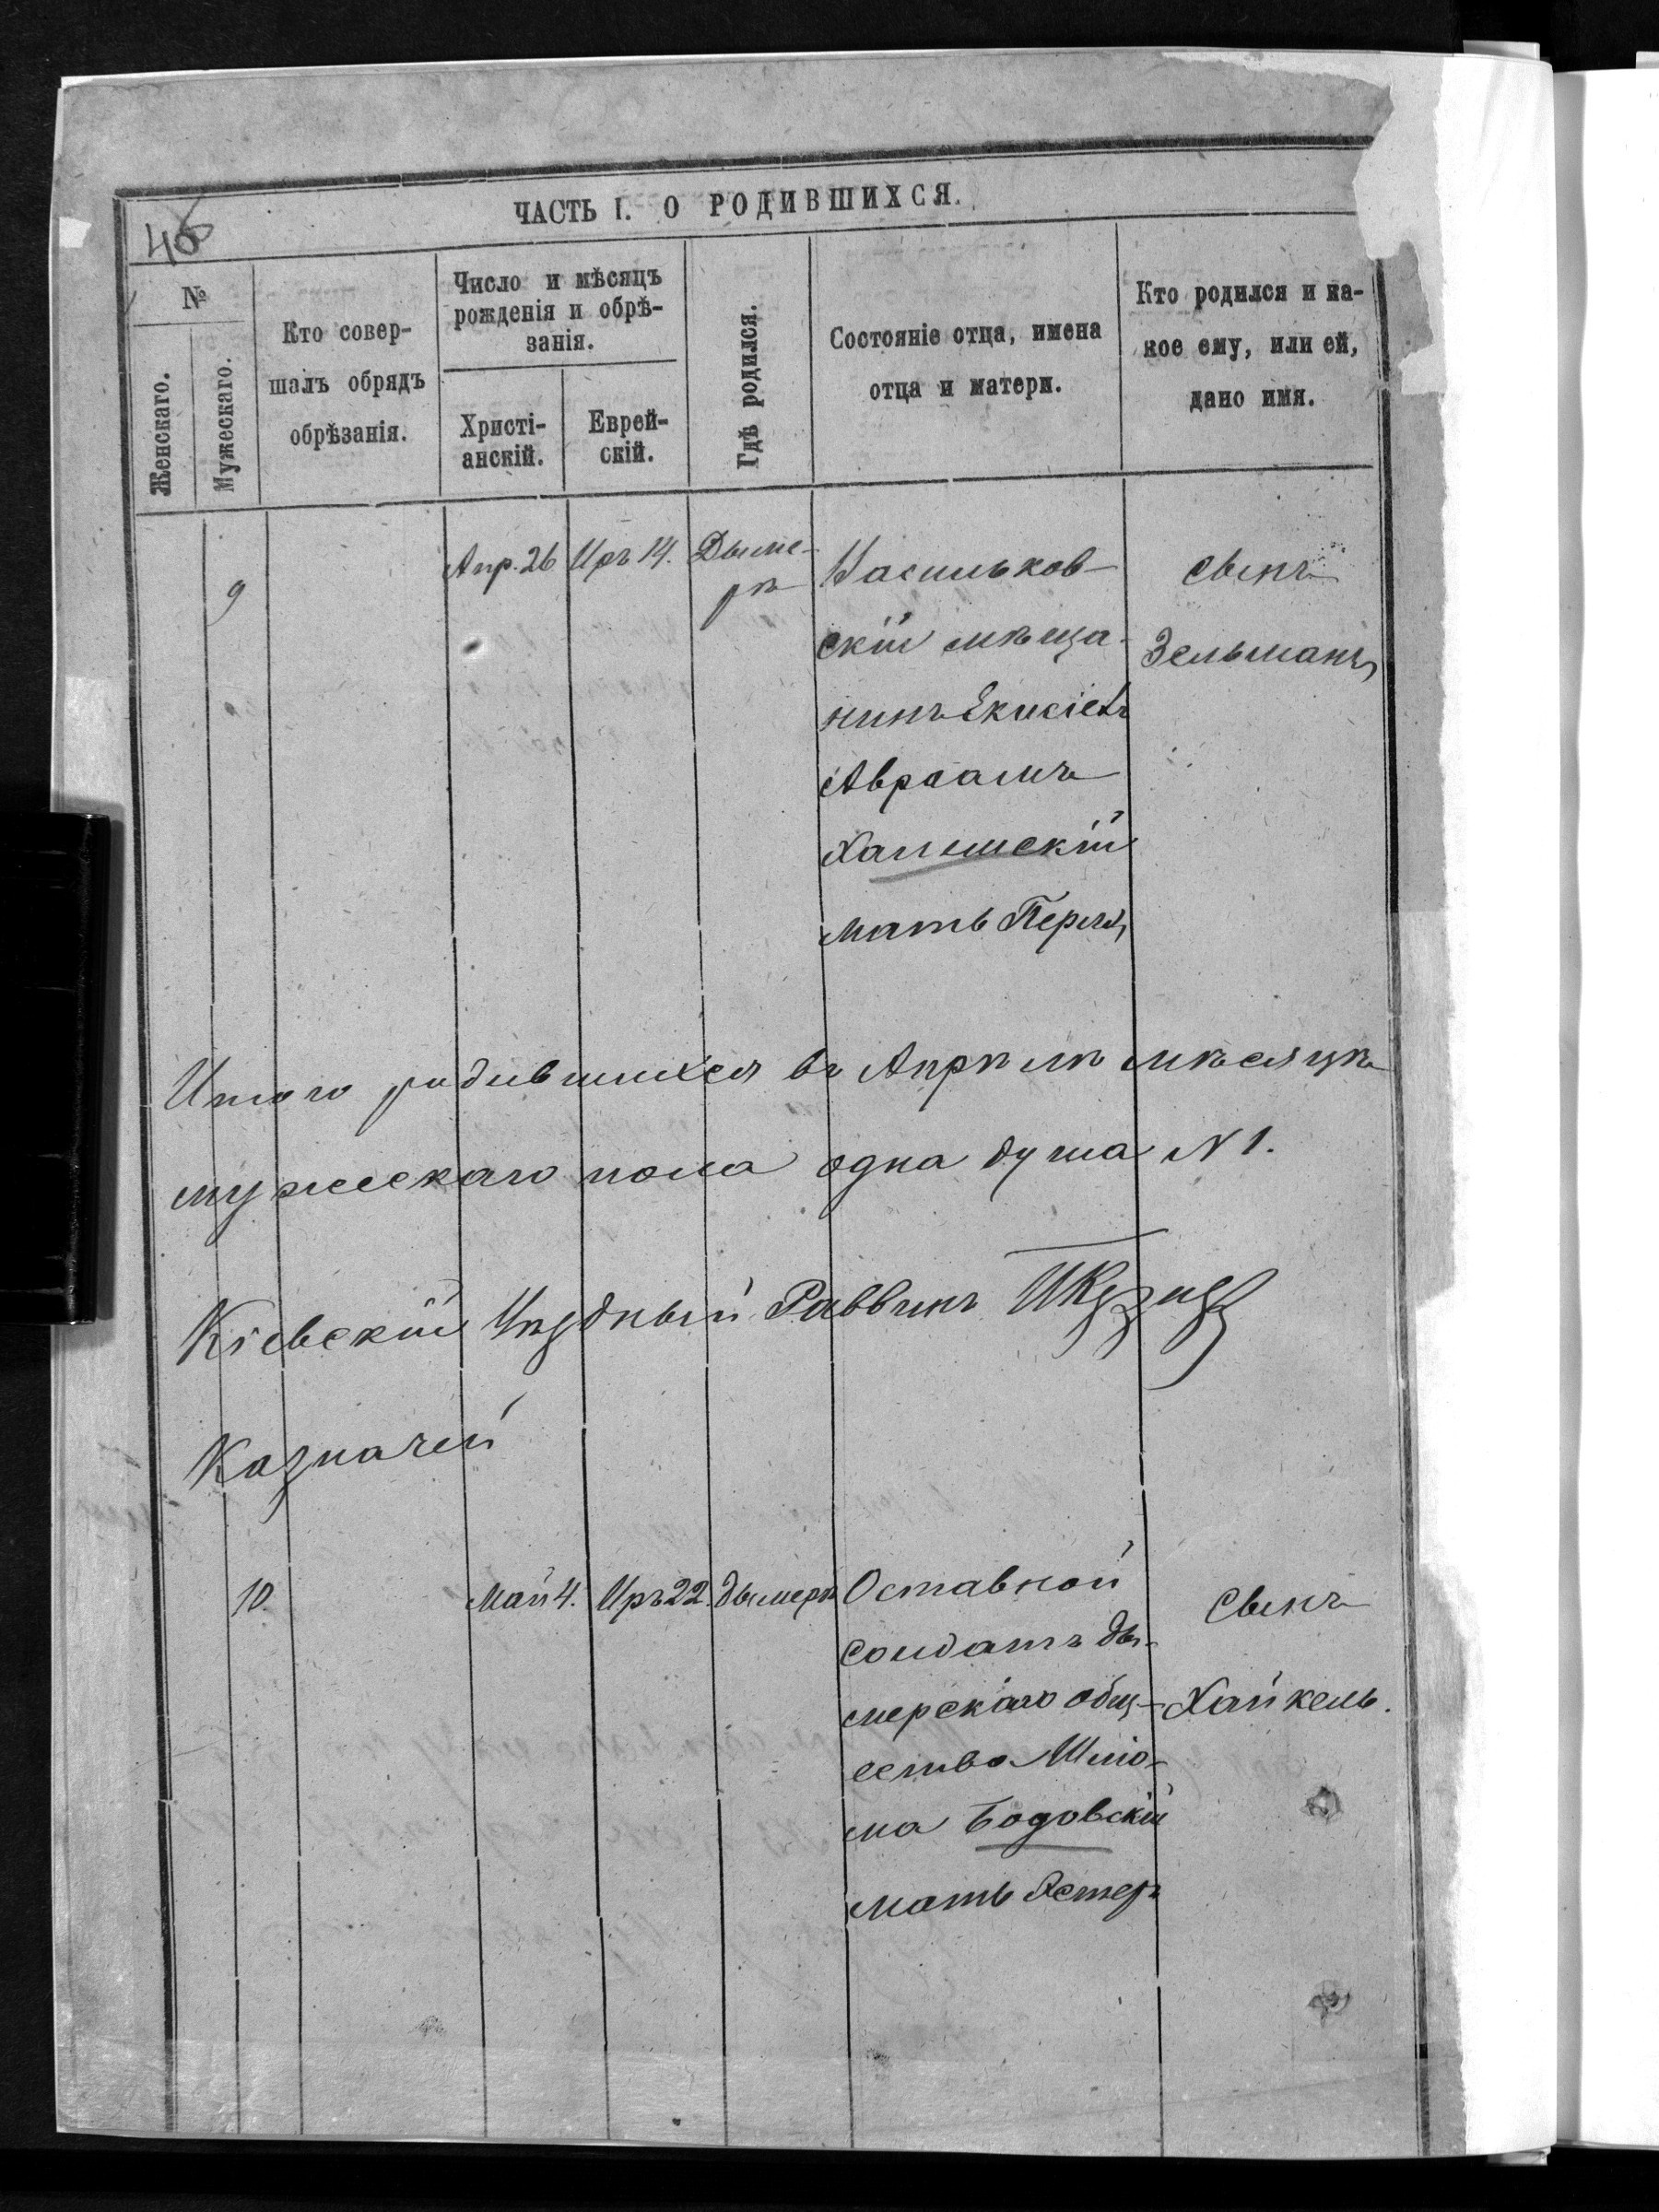 46
ЧАСТЬ I. О РОДИВШИХСЯ.
№
Женскаго.
Мужескаго.
Кто совер-
шалъ обрядъ
обрѣзанія.
Число и мѣсяцъ
рожденія и обрѣ-
занія.
Христі-
анскій.
Еврей-
скій.
Гдѣ родился.
Состояніе отца, имена
отца и матери.
Кто родился и ка-
кое ему, или ей,
дано имя.
9
Апр. 26
Иръ 14.
Дыме-
рѣ
Васильков-
скій мѣща-
нинъ Екисіель
Авраамъ
мать Перля
сынъ
Зельманъ
Итого родившихся въ Апрѣлѣ мѣсяцѣ
мужескаго пола одна душа N 1.
Кіевскій Уѣздный Раввинъ
Казначей
10.
Май 4.
Иръ 22.
Дымеръ
Оставной
солдатъ ды-
мерскаго общ-
ества Шлio-
ма Бодовскій
мать Эстеръ
Сынъ
Хайкель.